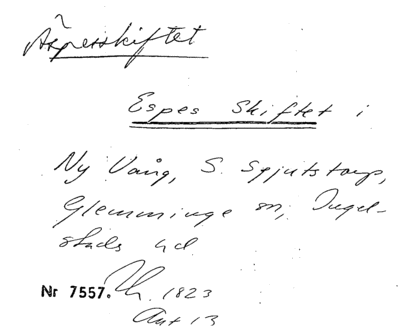 Äspesskiftet
Espes Skiftet i
Ny Vång, S. Spjutstorp,
Glemminge sn, Ingel-
stads hd.
Nr 7557. 1823